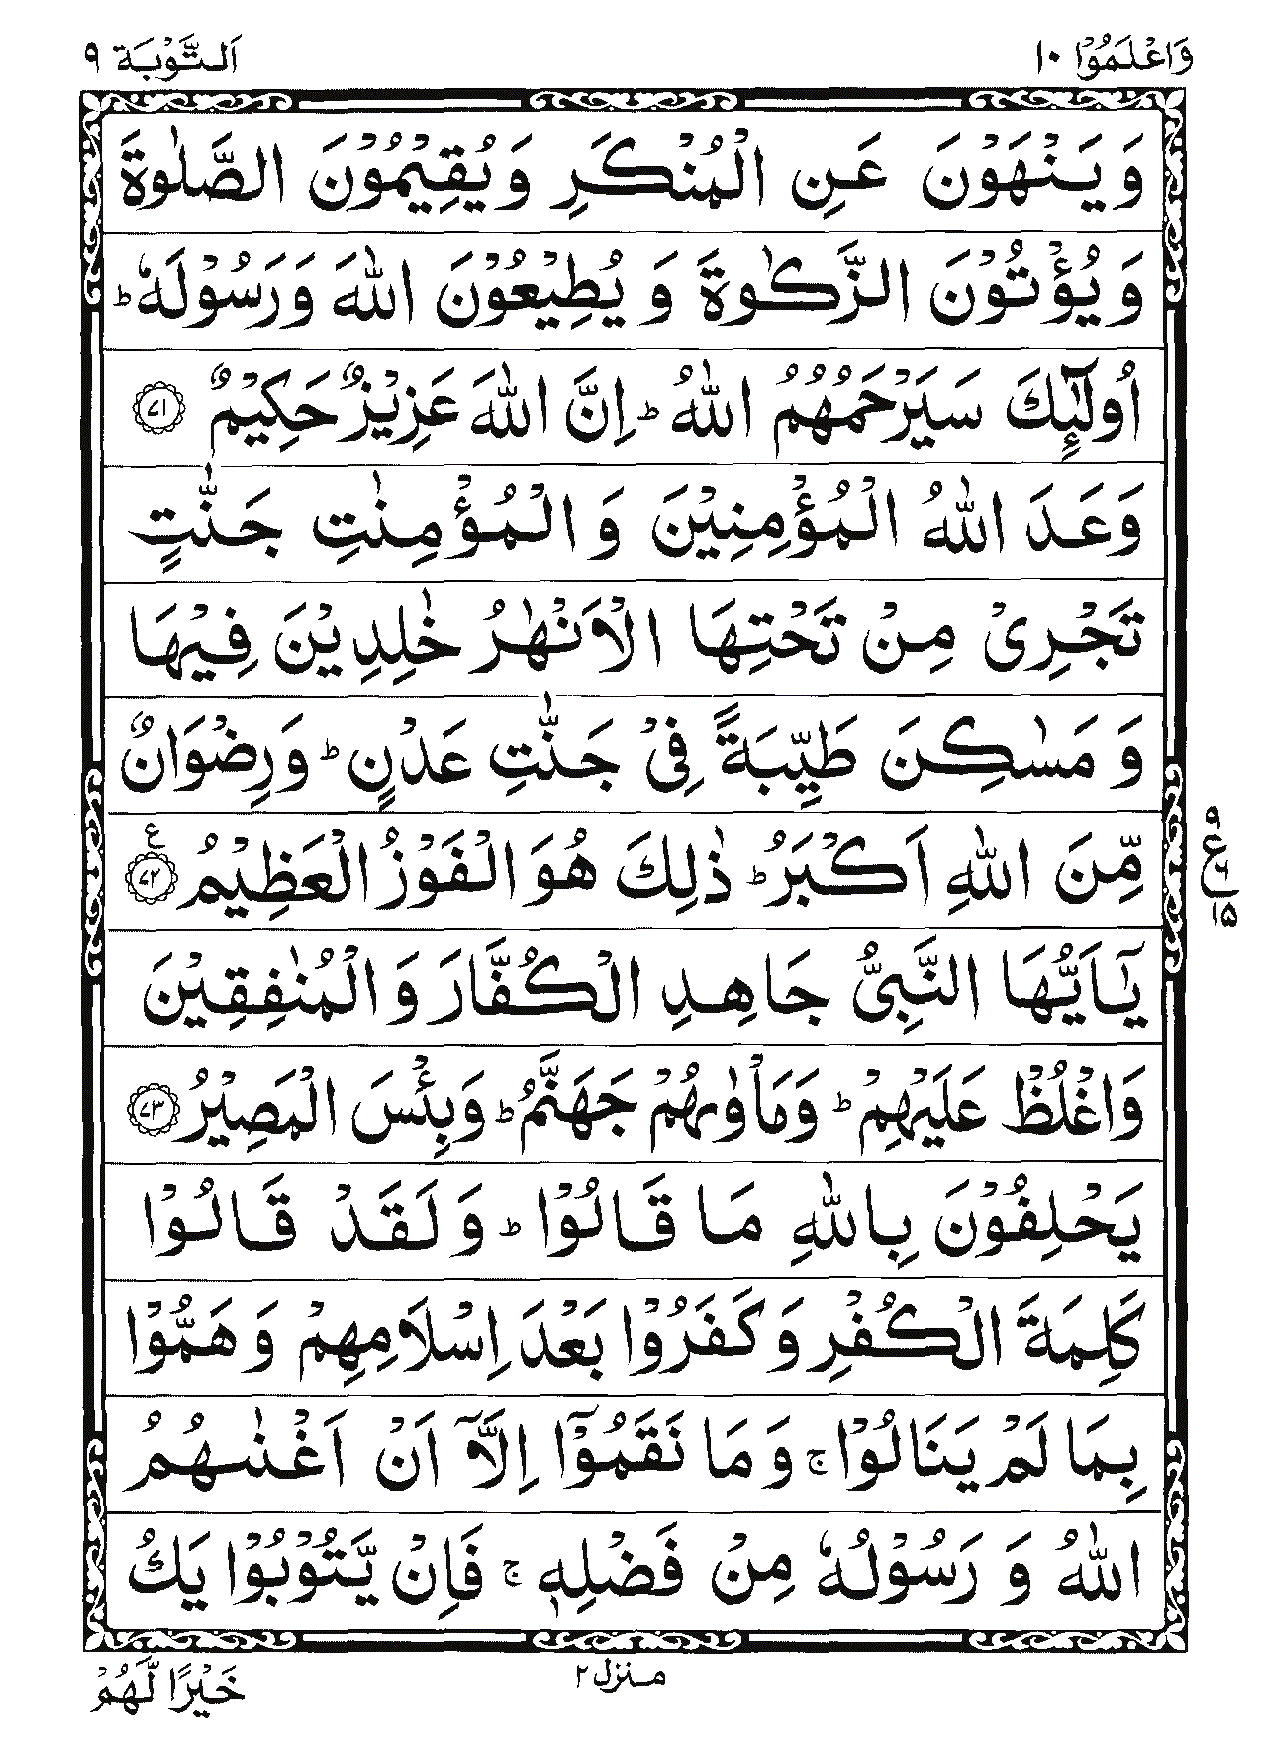 وَاعْلَمُوْۤا ١٠
اَلتَّوْبَة ٩
وَ يَنْهَوْنَ عَنِ الْمُنْكَرِ وَيُقِيْمُوْنَ الصَّلٰوةَ
وَ يُؤْتُوْنَ الزَّكٰوةَ وَ يُطِيْعُوْنَ اللّٰهَ وَرَسُوْلَهٗ ؕ
اُولٰٓئِكَ سَيَرْحَمُهُمُ اللّٰهُ ؕ اِنَّ اللّٰهَ عَزِيْزٌ حَكِيْمٌ ﴿٧١﴾
وَعَدَ اللّٰهُ الْمُؤْمِنِيْنَ وَ الْمُؤْمِنٰتِ جَنّٰتٍ
تَجْرِىْ مِنْ تَحْتِهَا الْاَنْهٰرُ خٰلِدِيْنَ فِيْهَا
وَ مَسٰكِنَ طَيِّبَةً فِىْ جَنّٰتِ عَدْنٍ ؕ وَرِضْوَانٌ
مِّنَ اللّٰهِ اَكْبَرُ ؕ ذٰلِكَ هُوَ الْفَوْزُ الْعَظِيْمُ ﴿٧٢﴾ ع
٩ ع ٦ ١٥
يٰۤاَيُّهَا النَّبِىُّ جَاهِدِ الْكُفَّارَ وَ الْمُنٰفِقِيْنَ
وَاغْلُظْ عَلَيْهِمْ ؕ وَمَاْوٰىهُمْ جَهَنَّمُ ؕ وَبِئْسَ الْمَصِيْرُ ﴿٧٣﴾
يَحْلِفُوْنَ بِاللّٰهِ مَا قَالُوْا ؕ وَلَقَدْ قَالُوْا
كَلِمَةَ الْكُفْرِ وَ كَفَرُوْا بَعْدَ اِسْلَامِهِمْ وَ هَمُّوْا
بِمَا لَمْ يَنَالُوْا ۚ وَ مَا نَقَمُوْۤا اِلَّاۤ اَنْ اَغْنٰىهُمُ
اللّٰهُ وَ رَسُوْلُهٗ مِنْ فَضْلِهٖ ۚ فَاِنْ يَّتُوْبُوْا يَكُ
منزل ٢
خَيْرًا لَّهُمْ